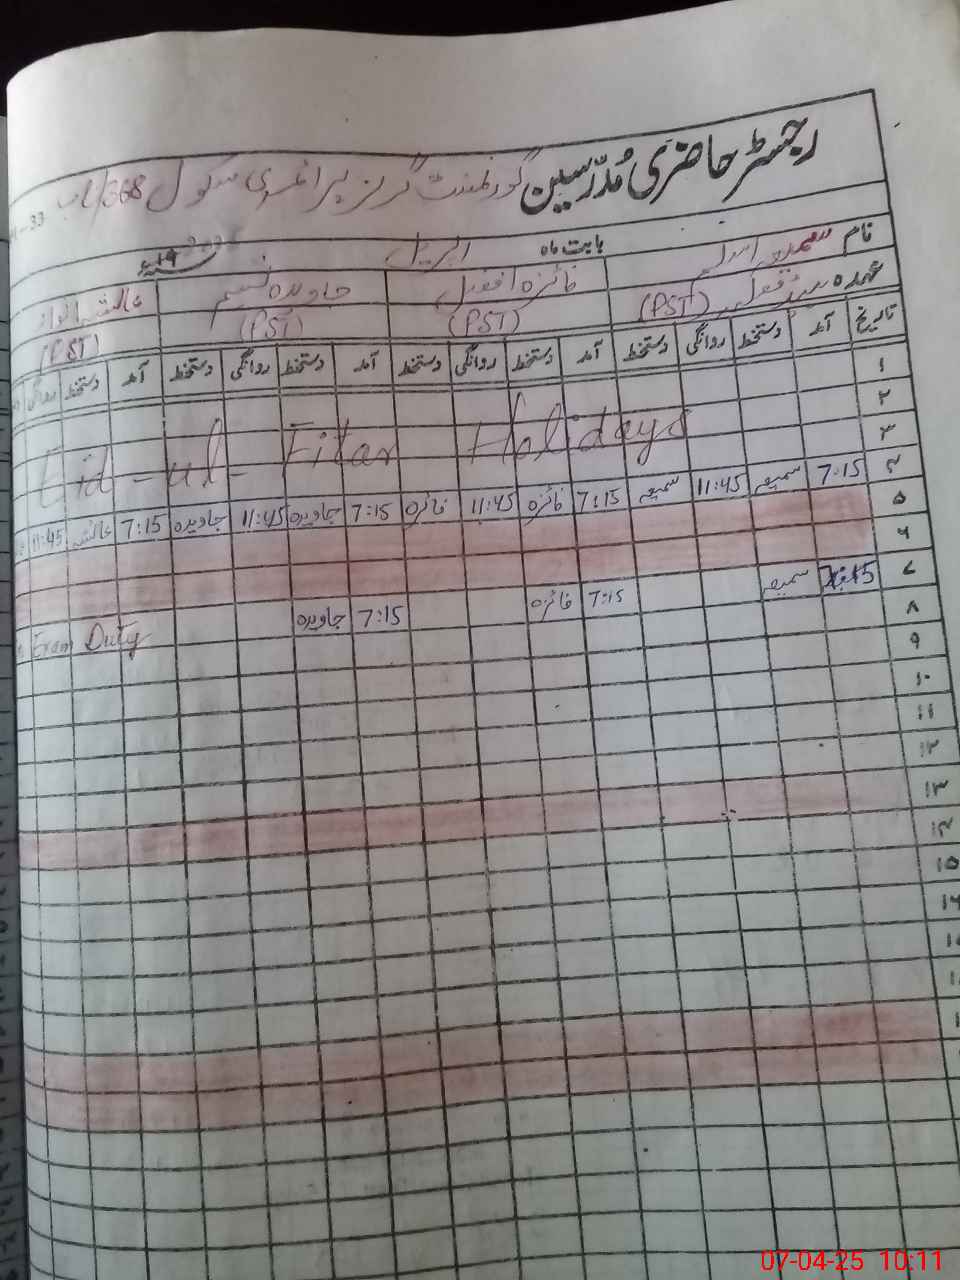 رجسٹر حاضری مُدرّسین گورنمنٹ گرلز پرائمری سکول 368/
بابت ماہ اپریل
نام سمعیہ اسلم فائزہ افضل جاویدہ نسیم عائشہ
عہدہ (PST) (PST) (PST) (PST)
تاریخ آمد دستخط روانگی دستخط آمد دستخط روانگی دستخط آمد دستخط روانگی دستخط آمد دستخط روانگی
۱
۲
۳
Eid - ul - Fitar Holidays
۴ 7:15 سمیعہ 11:45 سمیعہ 7:15 فائزہ 11:45 فائزہ 7:15 جاویدہ 11:45 جاویدہ 7:15 عائشہ 11:45
۵
۶
۷ 7:15 سمیعہ 7:15 فائزہ 7:15 جاویدہ Exam Duty
۸
۹
۱۰
۱۱
۱۲
۱۳
۱۴
۱۵
۱۶
07-04-25 10:11